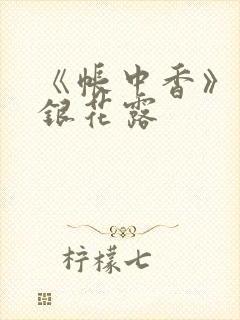 《帐中香》
银花露
柠檬七